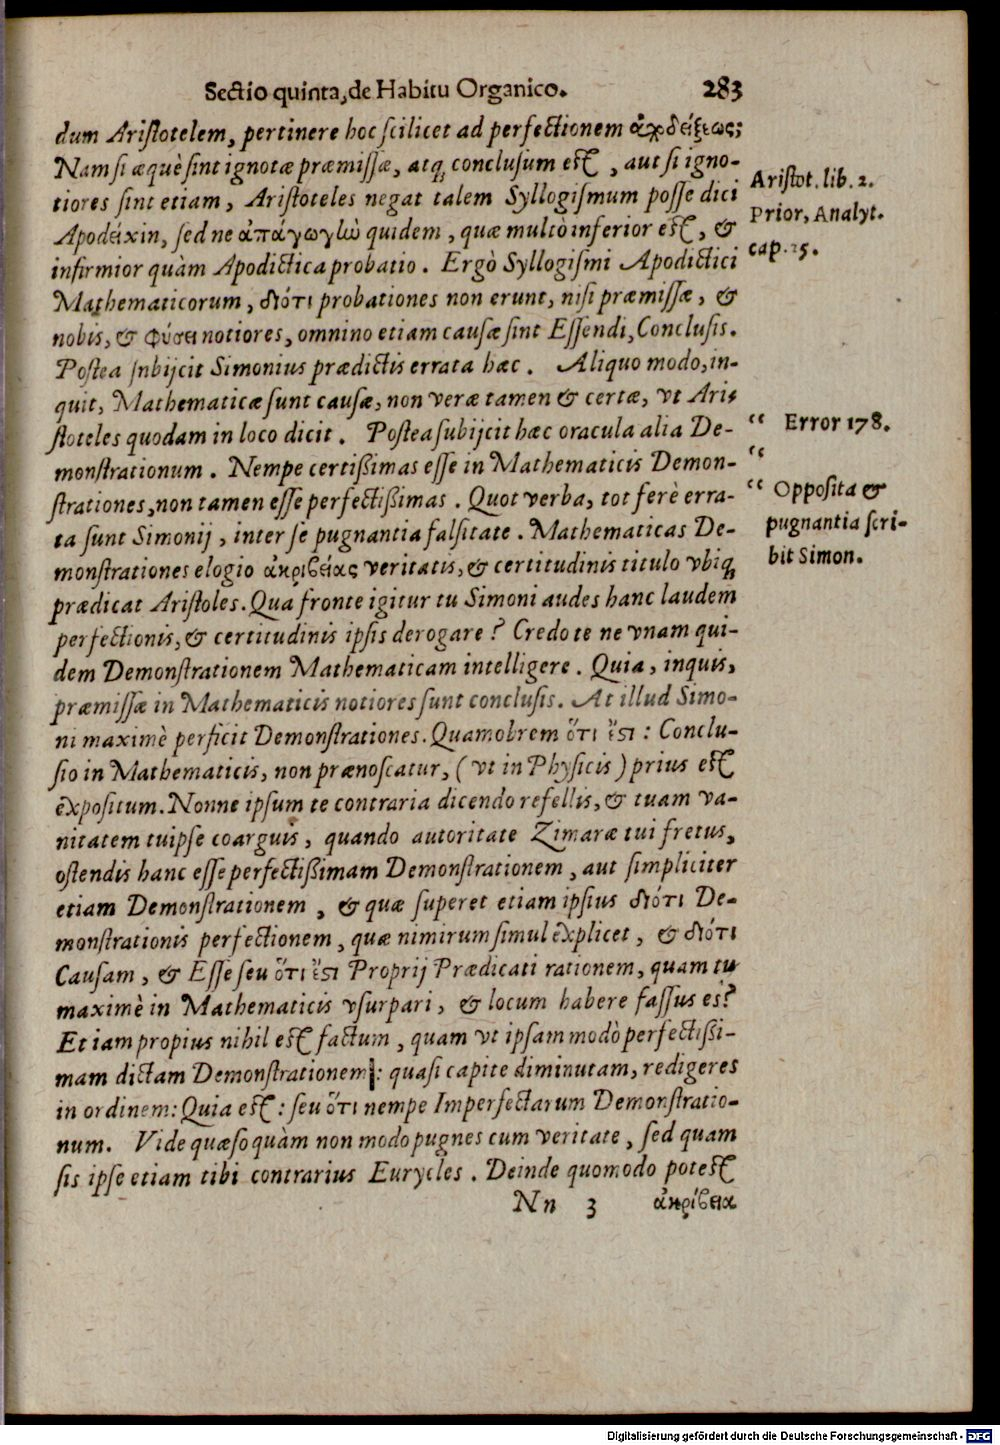 Sectio quinta, de Habitu Organico. 283
dum Ariſtotelem, pertinere hoc ſcilicet ad perfectionem ἀποδείξεως;
Nam ſi æquè ſint ignotæ præmiſſæ, atq́; concluſum eſt, aut ſi igno-
tiores ſint etiam, Ariſtoteles negat talem Syllogiſmum poſſe dici
Apodείxin, ſed ne ἀπάγωγὼ quidem, quæ multò inferior eſt, &
infirmior quàm Apodictica probatio. Ergò Syllogiſmi Apodictici
Mathematicorum, διότι probationes non erunt, niſi præmiſſæ, &
nobis, & φύσει notiores, omnino etiam cauſæ ſint Eſſendi, Concluſis.
Poſtea ſubijcit Simonius prædictis errata hæc. Aliquo modo, in-
quit, Mathematicæ ſunt cauſæ, non veræ tamen & certæ, vt Ari-
ſtoteles quodam in loco dicit. Poſtea ſubijcit hæc oracula alia De-
monſtrationum. Nempe certißimas eſſe in Mathematicis Demon-
ſtrationes, non tamen eſſe perfectißimas. Quot verba, tot ferè erra-
ta ſunt Simonij, inter ſe pugnantia falſitate. Mathematicas De-
monſtrationes elogio ἀκριβείας veritatis, & certitudinis titulo vbiq́;
prædicat Ariſtoles. Qua fronte igitur tu Simoni audes hanc laudem
perfectionis, & certitudinis ipſis derogare? Credo te ne vnam qui-
dem Demonſtrationem Mathematicam intelligere. Quia, inquis,
præmiſſæ in Mathematicis notiores ſunt concluſis. At illud Simo-
ni maximè perficit Demonſtrationes. Quamobrem ὅτι ἔϛι: Conclu-
ſio in Mathematicis, non prænoſcatur, (vt in Phyſicis) prius eſt
expoſitum. Nonne ipſum te contraria dicendo refellis, & tuam va-
nitatem tuipſe coarguis, quando autoritate Zimaræ tui fretus,
oſtendis hanc eſſe perfectißimam Demonſtrationem, aut ſimpliciter
etiam Demonſtrationem, & quæ ſuperet etiam ipſius διότι De-
monſtrationis perfectionem, quæ nimirum ſimul explicet, & διότι
Cauſam, & Eſſe ſeu ὅτι ἔϛι Proprij Prædicati rationem, quam tu
maximè in Mathematicis vſurpari, & locum habere faſſus es?
Et iam propius nihil eſt factum, quam vt ipſam modò perfectißi-
mam dictam Demonſtrationem: quaſi capite diminutam, redigeres
in ordinem: Quia eſt: ſeu ὅτι nempe Imperfectarum Demonſtratio-
num. Vide quæſo quàm non modo pugnes cum veritate, ſed quam
ſis ipſe etiam tibi contrarius Eurycles. Deinde quomodo poteſt
Nn 3 ἀκρίβεια
Ariſtot. lib. 2.
Prior, Analyt.
cap. 25.
“ Error 178.
“
“ Oppoſita &
pugnantia ſcri-
bit Simon.
Digitalisierung gefördert durch die Deutsche Forschungsgemeinschaft - DFG